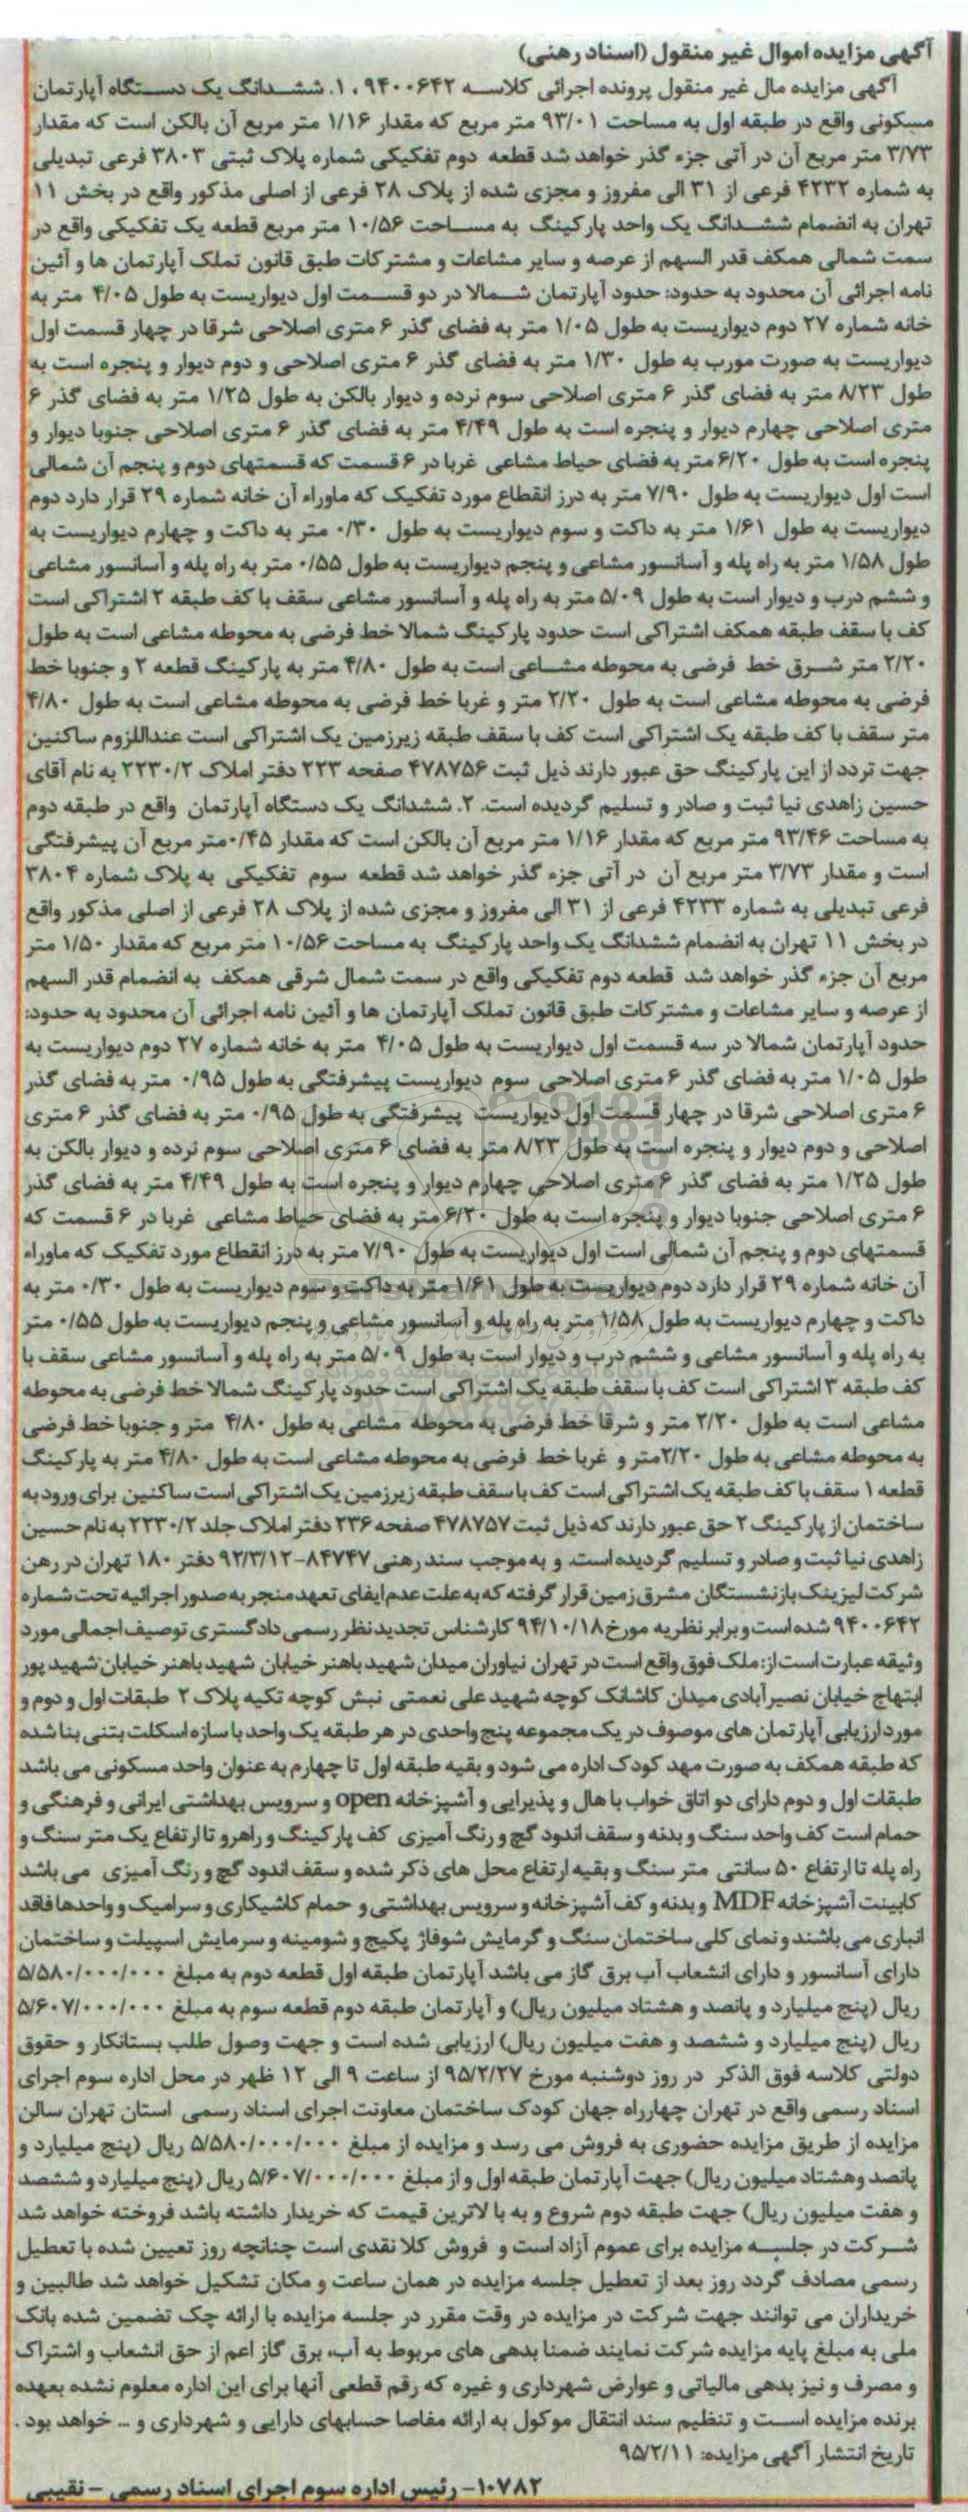 آگهی مزایده اموال غیر منقول (اسناد رهنی)
آگهی مزایده مال غیر منقول پرونده اجرائی کلاسه ۹۴۰۰۶۴۲، ۱. ششدانگ یک دستگاه آپارتمان
مسکونی واقع در طبقه اول به مساحت ۹۳/۰۱ متر مربع که مقدار ۱/۱۶ متر مربع آن بالکن است که مقدار
۳/۷۳ متر مربع آن در آتی جزء گذر خواهد شد قطعه دوم تفکیکی شماره پلاک ثبتی ۳۸۰۳ فرعی تبدیلی
به شماره ۴۲۳۲ فرعی از ۳۱ الی مفروز و مجزی شده از پلاک ۲۸ فرعی از اصلی مذکور واقع در بخش ۱۱
تهران به انضمام ششدانگ یک واحد پارکینگ به مساحت ۱۰/۵۶ متر مربع قطعه یک تفکیکی واقع در
سمت شمالی همکف قدر السهم از عرصه و سایر مشاعات و مشترکات طبق قانون تملک آپارتمان ها و آئین
نامه اجرائی آن محدود به حدود: حدود آپارتمان شمالا در دو قسمت اول دیواریست به طول ۴/۰۵ متر به
خانه شماره ۲۷ دوم دیواریست به طول ۱/۰۵ متر به فضای گذر ۶ متری اصلاحی شرقا در چهار قسمت اول
دیواریست به صورت مورب به طول ۱/۳۰ متر به فضای گذر ۶ متری اصلاحی و دوم دیوار و پنجره است به
طول ۸/۲۳ متر به فضای گذر ۶ متری اصلاحی سوم نرده و دیوار بالکن به طول ۱/۲۵ متر به فضای گذر ۶
متری اصلاحی چهارم دیوار و پنجره است به طول ۴/۴۹ متر به فضای گذر ۶ متری اصلاحی جنوبا دیوار و
پنجره است به طول ۶/۲۰ متر به فضای حیاط مشاعی غربا در ۶ قسمت که قسمتهای دوم و پنجم آن شمالی
است اول دیواریست به طول ۷/۹۰ متر به درز انقطاع مورد تفکیک که ماوراء آن خانه شماره ۲۹ قرار دارد دوم
دیواریست به طول ۱/۶۱ متر به داکت و سوم دیواریست به طول ۰/۳۰ متر به داکت و چهارم دیواریست به
طول ۱/۵۸ متر به راه پله و آسانسور مشاعی و پنجم دیواریست به طول ۰/۵۵ متر به راه پله و آسانسور مشاعی
و ششم درب و دیوار است به طول ۵/۰۹ متر به راه پله و آسانسور مشاعی سقف با کف طبقه ۲ اشتراکی است
کف با سقف طبقه همکف اشتراکی است حدود پارکینگ شمالا خط فرضی به محوطه مشاعی است به طول
۲/۲۰ متر شرق خط فرضی به محوطه مشاعی است به طول ۴/۸۰ متر به پارکینگ قطعه ۲ و جنوبا خط
فرضی به محوطه مشاعی است به طول ۲/۲۰ متر و غربا خط فرضی به محوطه مشاعی است به طول ۴/۸۰
متر سقف با کف طبقه یک اشتراکی است کف با سقف طبقه زیرزمین یک اشتراکی است عنداللزوم ساکنین
جهت تردد از این پارکینگ حق عبور دارند ذیل ثبت ۴۷۸۷۵۶ صفحه ۲۲۳ دفتر املاک ۲۲۳۰/۲ به نام آقای
حسین زاهدی نیا ثبت و صادر و تسلیم گردیده است. ۲. ششدانگ یک دستگاه آپارتمان واقع در طبقه دوم
به مساحت ۹۳/۴۶ متر مربع که مقدار ۱/۱۶ متر مربع آن بالکن است که مقدار ۰/۴۵متر مربع آن پیشرفتگی
است و مقدار ۳/۷۳ متر مربع آن در آتی جزء گذر خواهد شد قطعه سوم تفکیکی به پلاک شماره ۳۸۰۴
فرعی تبدیلی به شماره ۴۲۳۳ فرعی از ۳۱ الی مفروز و مجزی شده از پلاک ۲۸ فرعی از اصلی مذکور واقع
در بخش ۱۱ تهران به انضمام ششدانگ یک واحد پارکینگ به مساحت ۱۰/۵۶ متر مربع که مقدار ۱/۵۰ متر
مربع آن جزء گذر خواهد شد قطعه دوم تفکیکی واقع در سمت شمال شرقی همکف به انضمام قدر السهم
از عرصه و سایر مشاعات و مشترکات طبق قانون تملک آپارتمان ها و آئین نامه اجرائی آن محدود به حدود:
حدود آپارتمان شمالا در سه قسمت اول دیواریست به طول ۴/۰۵ متر به خانه شماره ۲۷ دوم دیواریست به
طول ۱/۰۵ متر به فضای گذر ۶ متری اصلاحی سوم دیواریست پیشرفتگی به طول ۰/۹۵ متر به فضای گذر
۶ متری اصلاحی شرقا در چهار قسمت اول دیواریست پیشرفتگی به طول ۰/۹۵ متر به فضای گذر ۶ متری
اصلاحی و دوم دیوار و پنجره است به طول ۸/۲۳ متر به فضای ۶ متری اصلاحی سوم نرده و دیوار بالکن به
طول ۱/۲۵ متر به فضای گذر ۶ متری اصلاحی چهارم دیوار و پنجره است به طول ۴/۴۹ متر به فضای گذر
۶ متری اصلاحی جنوبا دیوار و پنجره است به طول ۶/۲۰ متر به فضای حیاط مشاعی غربا در ۶ قسمت که
قسمتهای دوم و پنجم آن شمالی است اول دیواریست به طول ۷/۹۰ متر به درز انقطاع مورد تفکیک که ماوراء
آن خانه شماره ۲۹ قرار دارد دوم دیواریست به طول ۱/۶۱ متر به داکت و سوم دیواریست به طول ۰/۳۰ متر به
داکت و چهارم دیواریست به طول ۱/۵۸ متر به راه پله و آسانسور مشاعی و پنجم دیواریست به طول ۰/۵۵ متر
به راه پله و آسانسور مشاعی و ششم درب و دیوار است به طول ۵/۰۹ متر به راه پله و آسانسور مشاعی سقف با
کف طبقه ۳ اشتراکی است کف با سقف طبقه یک اشتراکی است حدود پارکینگ شمالا خط فرضی به محوطه
مشاعی است به طول ۲/۲۰ متر و شرقا خط فرضی به محوطه مشاعی به طول ۴/۸۰ متر و جنوبا خط فرضی
به محوطه مشاعی به طول ۲/۲۰متر و غربا خط فرضی به محوطه مشاعی است به طول ۴/۸۰ متر به پارکینگ
قطعه ۱ سقف با کف طبقه یک اشتراکی است کف با سقف طبقه زیرزمین یک اشتراکی است ساکنین برای ورود به
ساختمان از پارکینگ ۲ حق عبور دارند که ذیل ثبت ۴۷۸۷۵۷ صفحه ۲۳۶ دفتر املاک جلد ۲۲۳۰/۲ به نام حسین
زاهدی نیا ثبت و صادر و تسلیم گردیده است. و به موجب سند رهنی ۸۴۷۴۷-۹۲/۳/۱۲ دفتر ۱۸۰ تهران در رهن
شرکت لیزینگ بازنشستگان مشرق زمین قرار گرفته که به علت عدم ایفای تعهد منجر به صدور اجرائیه تحت شماره
۹۴۰۰۶۴۲ شده است و برابر نظریه مورخ ۹۴/۱۰/۱۸ کارشناس تجدید نظر رسمی دادگستری توصیف اجمالی مورد
وثیقه عبارت است از: ملک فوق واقع است در تهران نیاوران میدان شهید باهنر خیابان شهید باهنر خیابان شهید پور
ابتهاج خیابان نصیرآبادی میدان کاشانک کوچه شهید علی نعمتی نبش کوچه تکیه پلاک ۲ طبقات اول و دوم و
مورد ارزیابی آپارتمان های موصوف در یک مجموعه پنج واحدی در هر طبقه یک واحد با سازه اسکلت بتنی بنا شده
که طبقه همکف به صورت مهد کودک اداره می شود و بقیه طبقه اول تا چهارم به عنوان واحد مسکونی می باشد
طبقات اول و دوم دارای دو اتاق خواب با هال و پذیرایی و آشپزخانه open و سرویس بهداشتی ایرانی و فرهنگی و
حمام است کف واحد سنگ و بدنه و سقف اندود گچ و رنگ آمیزی کف پارکینگ و راهرو تا ارتفاع یک متر سنگ و
راه پله تا ارتفاع ۵۰ سانتی متر سنگ و بقیه ارتفاع محل های ذکر شده و سقف اندود گچ و رنگ آمیزی می باشد
کابینت آشپزخانه MDF و بدنه و کف آشپزخانه و سرویس بهداشتی و حمام کاشیکاری و سرامیک و واحدها فاقد
انباری می باشند و نمای کلی ساختمان سنگ و گرمایش شوفاژ پکیج و شومینه و سرمایش اسپیلت و ساختمان
دارای آسانسور و دارای انشعاب آب برق گاز می باشد آپارتمان طبقه اول قطعه دوم به مبلغ ۵/۵۸۰/۰۰۰/۰۰۰
ریال (پنج میلیارد و پانصد و هشتاد میلیون ریال) و آپارتمان طبقه دوم قطعه سوم به مبلغ ۵/۶۰۷/۰۰۰/۰۰۰
ریال (پنج میلیارد و ششصد و هفت میلیون ریال) ارزیابی شده است و جهت وصول طلب بستانکار و حقوق
دولتی کلاسه فوق الذکر در روز دوشنبه مورخ ۹۵/۲/۲۷ از ساعت ۹ الی ۱۲ ظهر در محل اداره سوم اجرای
اسناد رسمی واقع در تهران چهارراه جهان کودک ساختمان معاونت اجرای اسناد رسمی استان تهران سالن
مزایده از طریق مزایده حضوری به فروش می رسد و مزایده از مبلغ ۵/۵۸۰/۰۰۰/۰۰۰ ریال (پنج میلیارد و
پانصد وهشتاد میلیون ریال) جهت آپارتمان طبقه اول و از مبلغ ۵/۶۰۷/۰۰۰/۰۰۰ ریال (پنج میلیارد و ششصد
و هفت میلیون ریال) جهت طبقه دوم شروع و به با لاترین قیمت که خریدار داشته باشد فروخته خواهد شد
شرکت در جلسه مزایده برای عموم آزاد است و فروش کلا نقدی است چنانچه روز تعیین شده با تعطیل
رسمی مصادف گردد روز بعد از تعطیل جلسه مزایده در همان ساعت و مکان تشکیل خواهد شد طالبین و
خریداران می توانند جهت شرکت در مزایده در وقت مقرر در جلسه مزایده با ارائه چک تضمین شده بانک
ملی به مبلغ پایه مزایده شرکت نمایند ضمنا بدهی های مربوط به آب، برق گاز اعم از حق انشعاب و اشتراک
و مصرف و نیز بدهی مالیاتی و عوارض شهرداری و غیره که رقم قطعی آنها برای این اداره معلوم نشده بعهده
برنده مزایده است و تنظیم سند انتقال موکول به ارائه مفاصا حسابهای دارایی و شهرداری و ... خواهد بود .
تاریخ انتشار آگهی مزایده: ۹۵/۲/۱۱
۱۰۷۸۲- رئیس اداره سوم اجرای اسناد رسمی - نقیبی